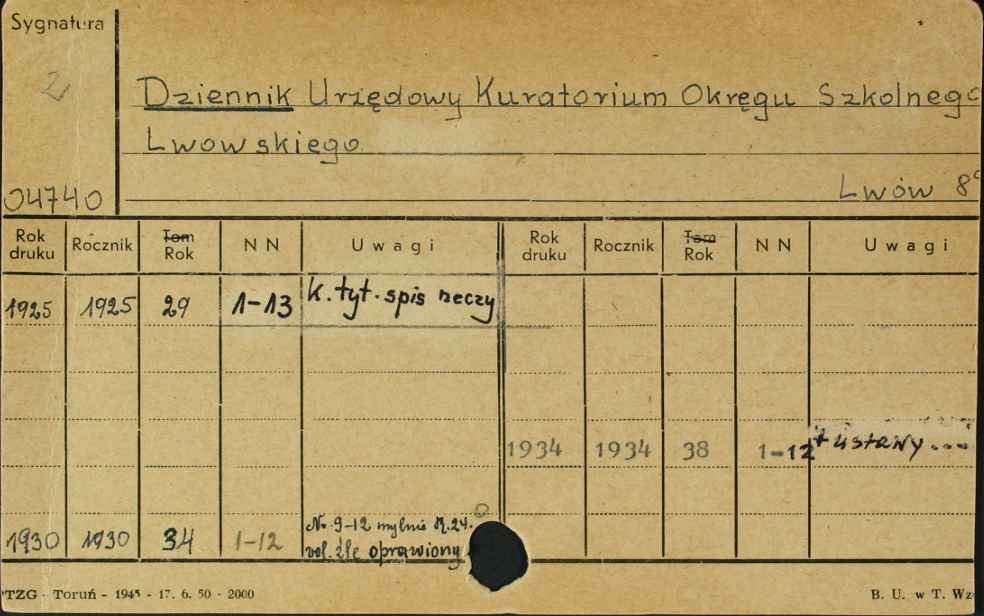 Sygnatura
2
Dziennik Urzędowy Kuratorium Okręgu Szkolnego
Lwowskiego
04740
Lwów 8°
Rok druku Rocznik Tom Rok NN Uwagi Rok druku Rocznik Tom Rok NN Uwagi
1925 1925 29 1-13 k. tyt. spis rzeczy
1934 1934 38 1-12 + ustawy ...
1930 1930 34 1-12 No. 9-12 mylnie R. 24.
vol. źle oprawiony
TZG - Toruń - 1945 - 17. 6. 50 - 2000 B. U. w T. Wz